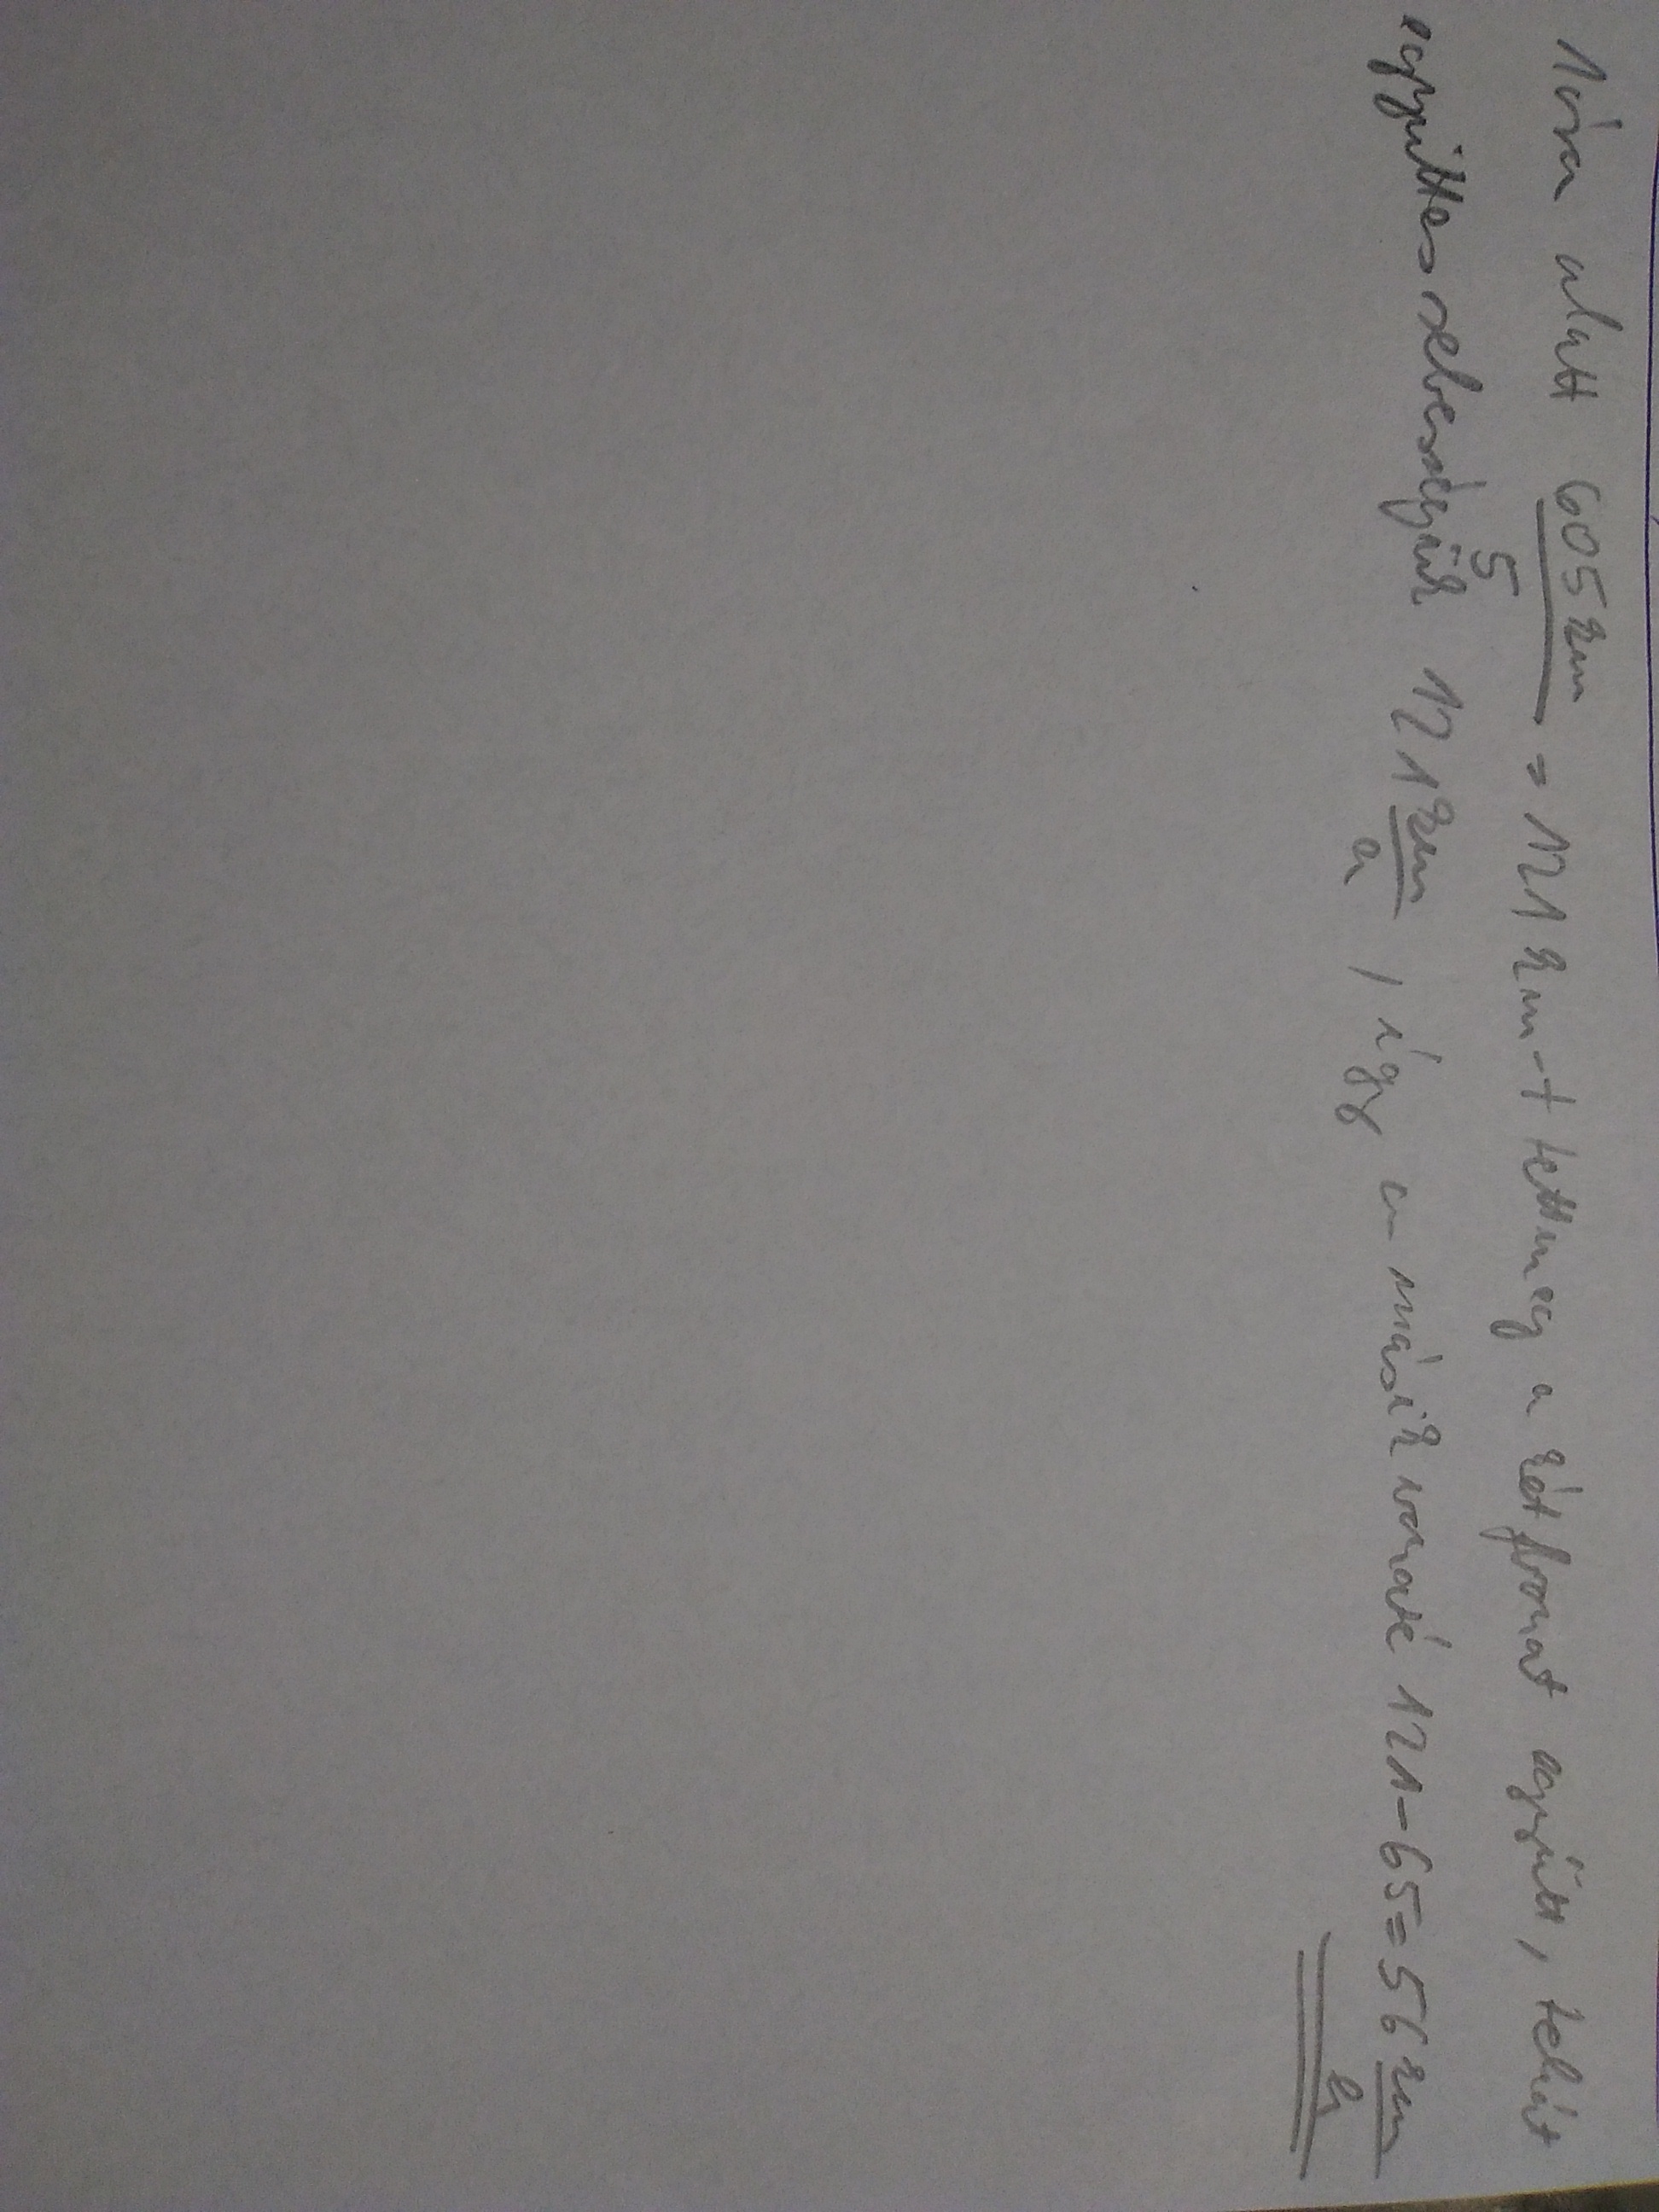 1 óra alatt 605 km / 5 = 121 km-t tett meg a két vonat együtt, tehát
együttes sebességük 121 km/h, így a másik vonaté 121-65=56 km/h